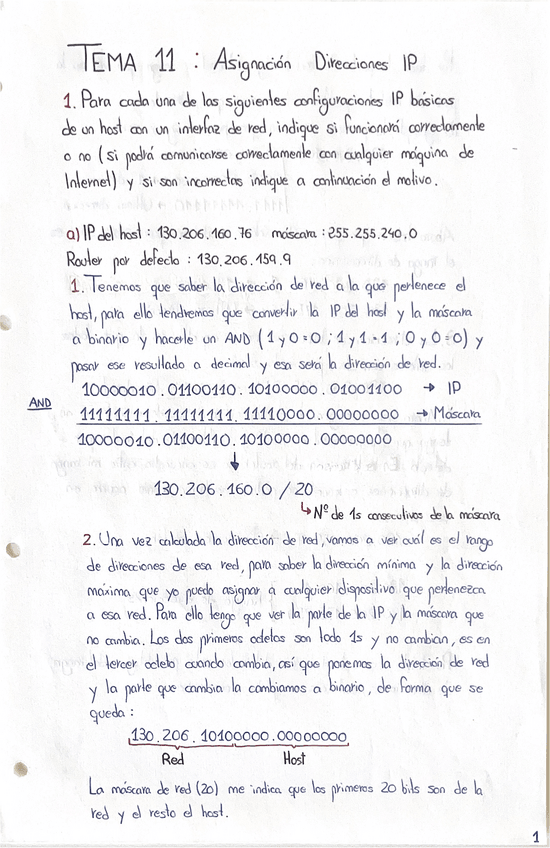 TEMA 11 : Asignación Direcciones IP
1. Para cada una de las siguientes configuraciones IP básicas
de un host con un interfaz de red, indique si funcionará correctamente
o no (si podrá comunicarse correctamente con cualquier máquina de
Internet) y si son incorrectas indique a continuación el motivo.
a) IP del host : 130.206.160.76 máscara : 255.255.240.0
Router por defecto : 130.206.159.9
1. Tenemos que saber la dirección de red a la que pertenece el
host, para ello tendremos que convertir la IP del host y la máscara
a binario y hacerle un AND (1 y 0 = 0 ; 1 y 1 = 1 ; 0 y 0 = 0) y
pasar ese resultado a decimal y esa será la dirección de red.
10000010.01100110.10100000.01001100 → IP
AND
11111111.11111111.11110000.00000000 → Máscara
10000010.01100110.10100000.00000000
↓
130.206.160.0 / 20
↳ Nº de 1s consecutivos de la máscara
2. Una vez calculada la dirección de red, vamos a ver cuál es el rango
de direcciones de esa red, para saber la dirección mínima y la dirección
máxima que yo puedo asignar a cualquier dispositivo que pertenezca
a esa red. Para ello tengo que ver la parte de la IP y la máscara que
no cambia. Los dos primeros octetos son todo 1s y no cambian, es en
el tercer octeto cuando cambia, así que ponemos la dirección de red
y la parte que cambia la cambiamos a binario, de forma que se
queda :
130.206.10100000.00000000
Red Host
La máscara de red (20) me indica que los primeros 20 bits son de la
red y el resto el host.
1